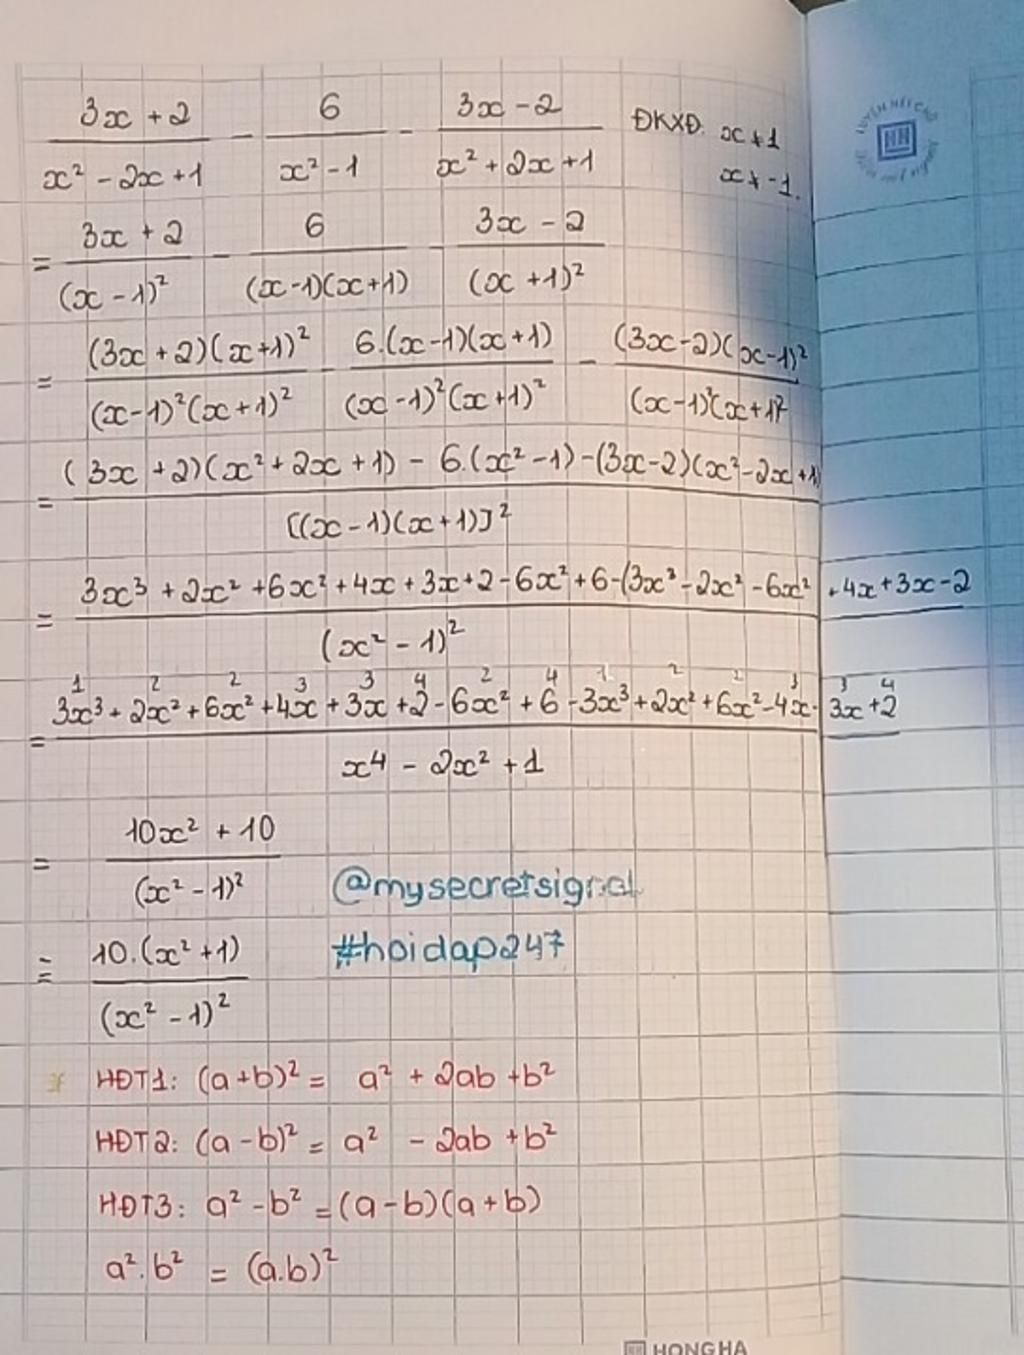 3x + 2 / x² - 2x + 1 - 6 / x² - 1 - 3x - 2 / x² + 2x + 1 ĐKXĐ. x ≠ 1
x ≠ -1.
= 3x + 2 / (x - 1)² - 6 / (x - 1)(x + 1) - 3x - 2 / (x + 1)²
= (3x + 2)(x + 1)² / (x - 1)²(x + 1)² - 6.(x - 1)(x + 1) / (x - 1)²(x + 1)² - (3x - 2)(x - 1)² / (x - 1)²(x + 1)²
= (3x + 2)(x² + 2x + 1) - 6.(x² - 1) - (3x - 2)(x² - 2x + 1) / [(x - 1)(x + 1)]²
= 3x³ + 2x² + 6x² + 4x + 3x + 2 - 6x² + 6 - (3x³ - 2x² - 6x² + 4x + 3x - 2 / (x² - 1)²
1 2 2 3 3 4 2 4 1 2 2 3 3 4
= 3x³ + 2x² + 6x² + 4x + 3x + 2 - 6x² + 6 - 3x³ + 2x² + 6x² - 4x - 3x + 2 / x⁴ - 2x² + 1
= 10x² + 10 / (x² - 1)²
@mysecretsignal
= 10.(x² + 1) / (x² - 1)²
#hoidap247
* HĐT1: (a + b)² = a² + 2ab + b²
HĐT2: (a - b)² = a² - 2ab + b²
HĐT3: a² - b² = (a - b)(a + b)
a².b² = (a.b)²
HONG HA